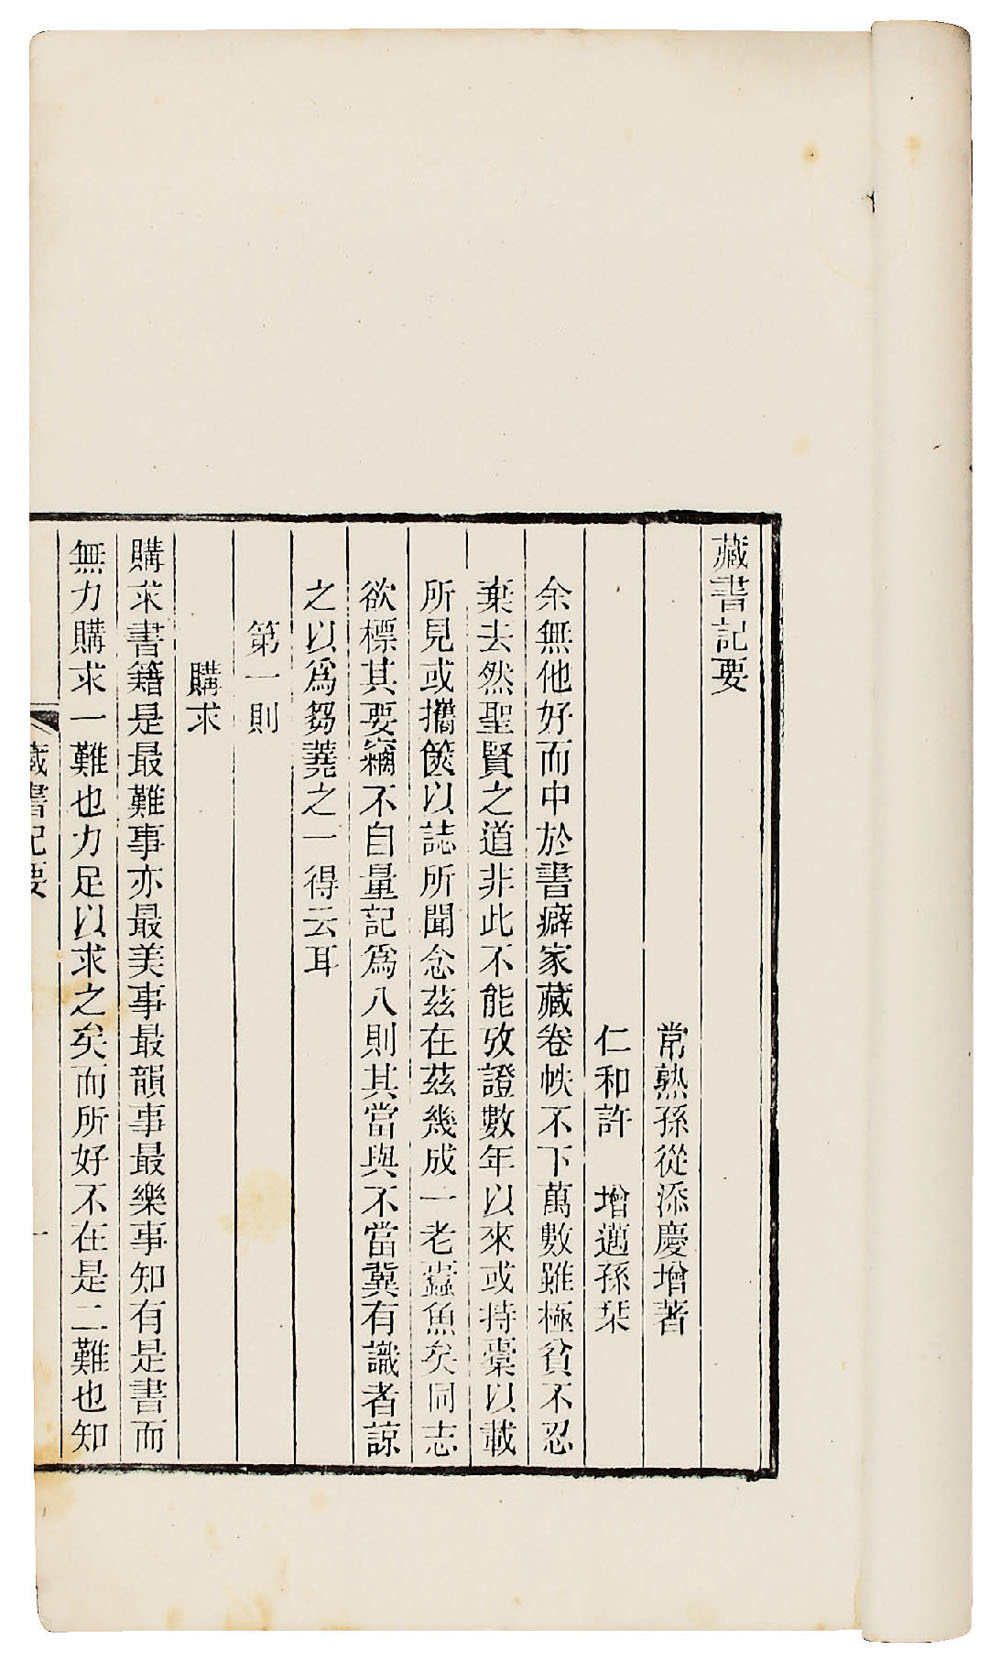 藏書記要
常熟孫從添慶增著
仁和許　增邁孫栞
余無他好而中於書癖家藏卷帙不下萬數雖極貧不忍
棄去然聖賢之道非此不能攷證數年以來或持橐以載
所見或攜篋以誌所聞念茲在茲幾成一老蠹魚矣同志
欲標其要竊不自量記爲八則其當與不當冀有識者諒
之以爲芻蕘之一得云耳
第一則
購求
購求書籍是最難事亦最美事最韻事最樂事知有是書而
無力購求一難也力足以求之矣而所好不在是二難也知
藏書記要
一